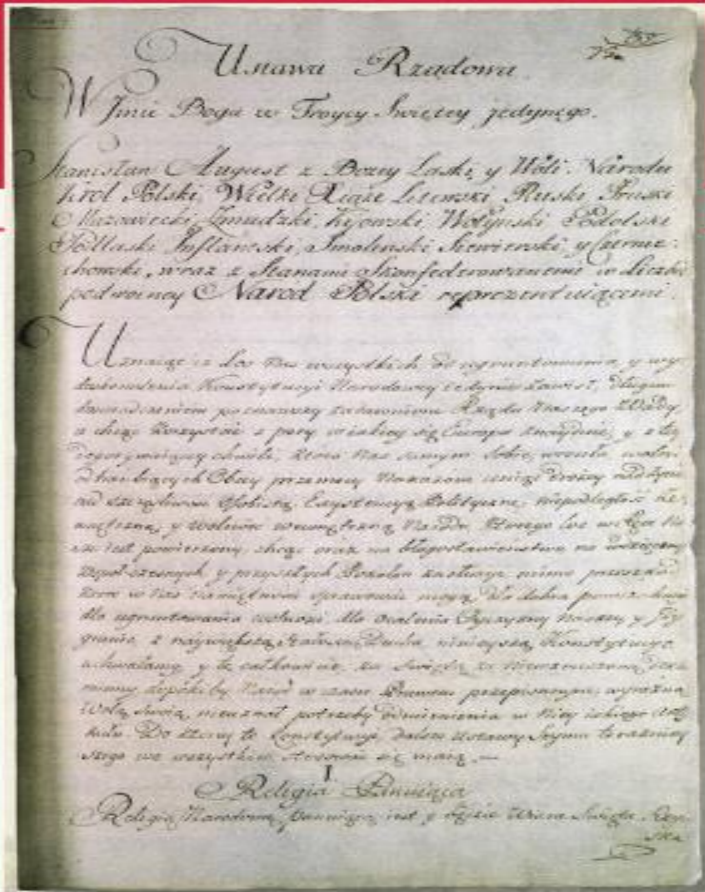 Ustawa Rządowa
W Jmie Boga w Troycy Swiętey jedynego.
Stanisław August z Bozey Łaski, y Woli Narodu
Krol Polski, Wielki Xiąże Litewski, Ruski Pruski
Mazowiecki, Zmudzki, Kijowski Wołynski Podolski
Podlaski Jnflancki, Smolenski Siewierski, y Czernie-
chowski, wraz z Stanami Skonfederowanemi w liczbie
podwoiney Narod Polski reprezentuiącemi.
Uznaiąc iz los Nas wszystkich od ugruntowania y wy-
doskonalenia Konstytucyi Narodowey iedynie zawisł, długim
doswiadczeniem poznawszy zadawnione Rządu Naszego Wady,
a chcąc korzystać z pory w iakiey się Europa znayduie, y z tey
dogorywaiącey chwili, ktora Nas samym Sobie wrociła, wolni
od Obcey przemocy Nakazow, ceniąc drozey nad zycie
nad szczęsliwosc Osobistą, Exystencyą Polityczną, niepodległość ze-
wnętrzną, y wolnosc wewnętrzną Narodu, ktorego los w ręce Na-
sze iest powierzony, chcąc oraz na błogosławienstwo, na wdzięcznosc
wspołczesnych, y przyszłych Pokolen zasłuzyc, mimo przeszkod
ktore w Nas namiętnosci sprawowac mogą, dla dobra
dla ugruntowania wolnosci, dla ocalenia Oyczyzny Naszey y Jey
granic, z naywiększą Stałoscią Ducha, ninieyszą Konstytucyę
uchwalamy, y tę całkowicie za Swiętą, za Niewzruszoną
dopokiby Narod w czasie Prawem przepisanym, wyrazną
Wolą Swoią, nieuznał potrzeby odmienienia w Niey iakiego Arty-
kułu. Do ktorey to Konstytucyi dalsze Ustawy Seymu teraznie-
szego we wszystkim stosowac się maią. —
I
Religia Panuiąca
Religią Narodową Panuiącą iest y będzie Wiara Swięta Rzym-
ska